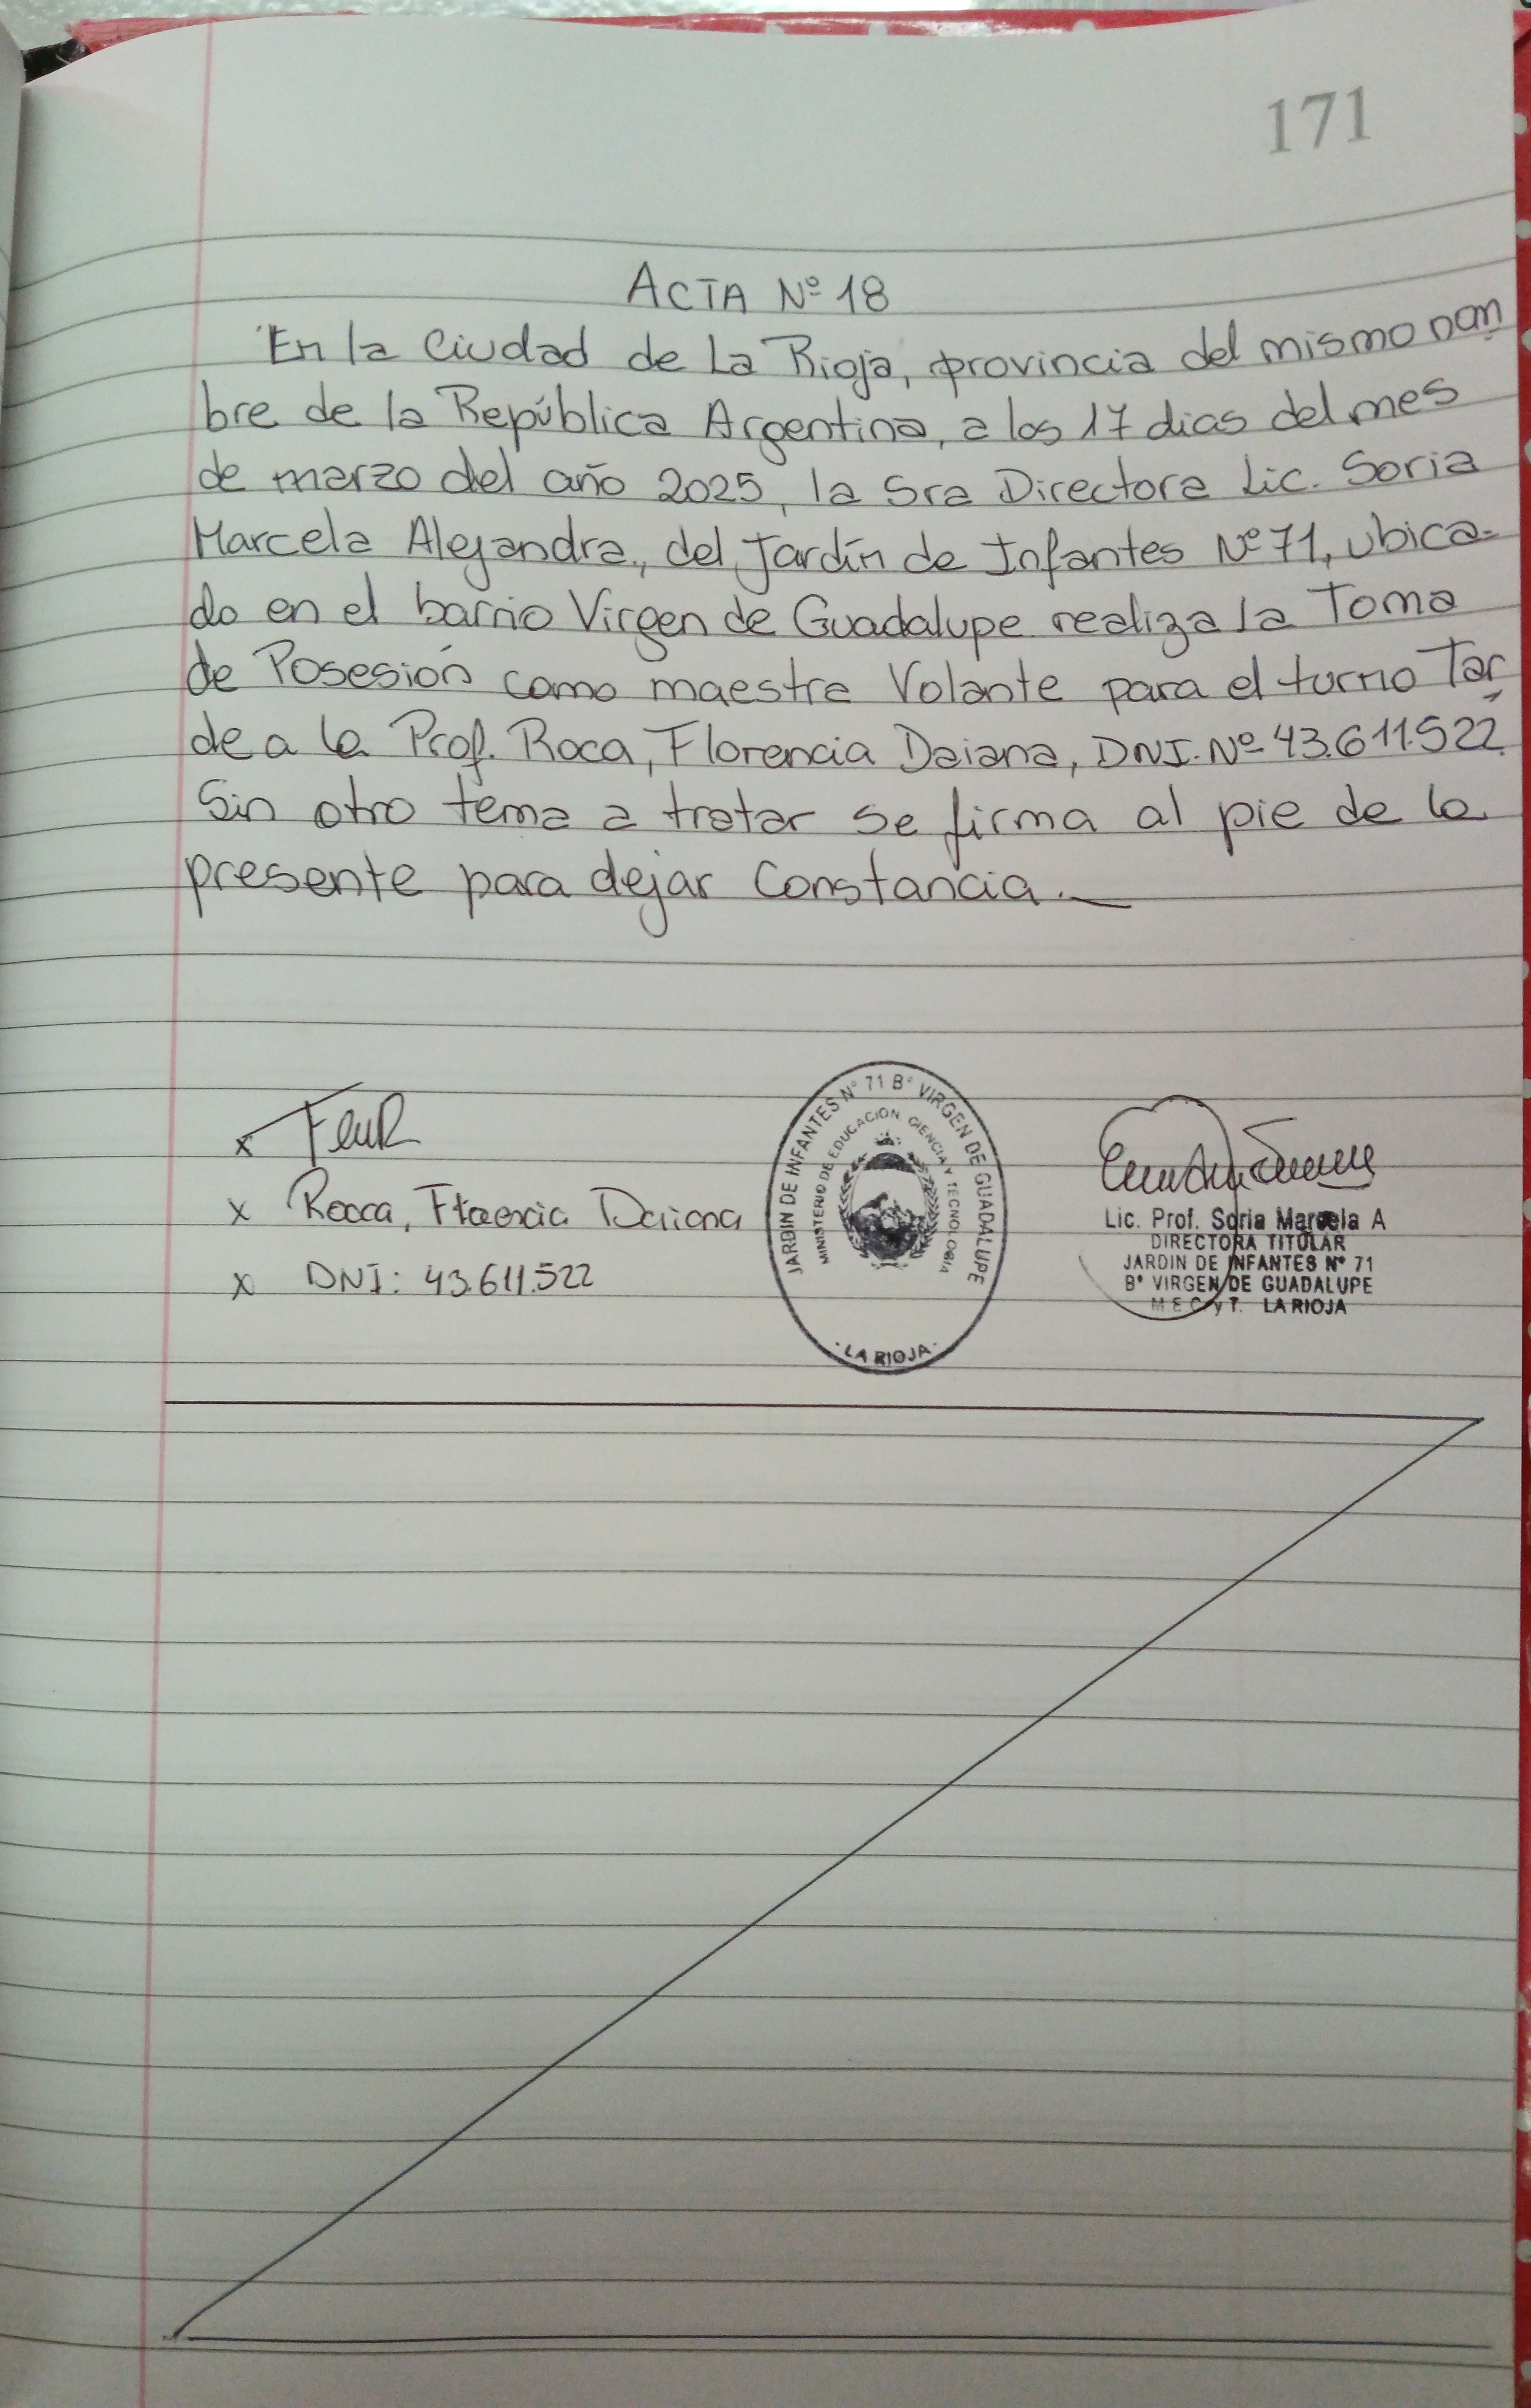 171
ACTA Nº 18
En la Ciudad de La Rioja, provincia del mismo nom
bre de la República Argentina, a los 17 dias del mes
de marzo del año 2025, la Sra Directora Lic. Soria
Marcela Alejandra, del Jardín de Infantes Nº 71, ubica-
do en el barrio Virgen de Guadalupe realiza la Toma
de Posesión como maestra Volante para el turno Tar
de a la Prof. Roca, Florencia Daiana, DNI. Nº 43.611.522.
Sin otro tema a tratar se firma al pie de la
presente para dejar Constancia.
x
x Rocca, Florencia Daiana
x DNI: 43.611.522
JARDIN DE INFANTES Nº 71 Bº VIRGEN DE GUADALUPE
MINISTERIO DE EDUCACION CIENCIA Y TECNOLOGIA
· LA RIOJA ·
Lic. Prof. Soria Marcela A
DIRECTORA TITULAR
JARDIN DE INFANTES Nº 71
Bº VIRGEN DE GUADALUPE
M E C y T. LA RIOJA